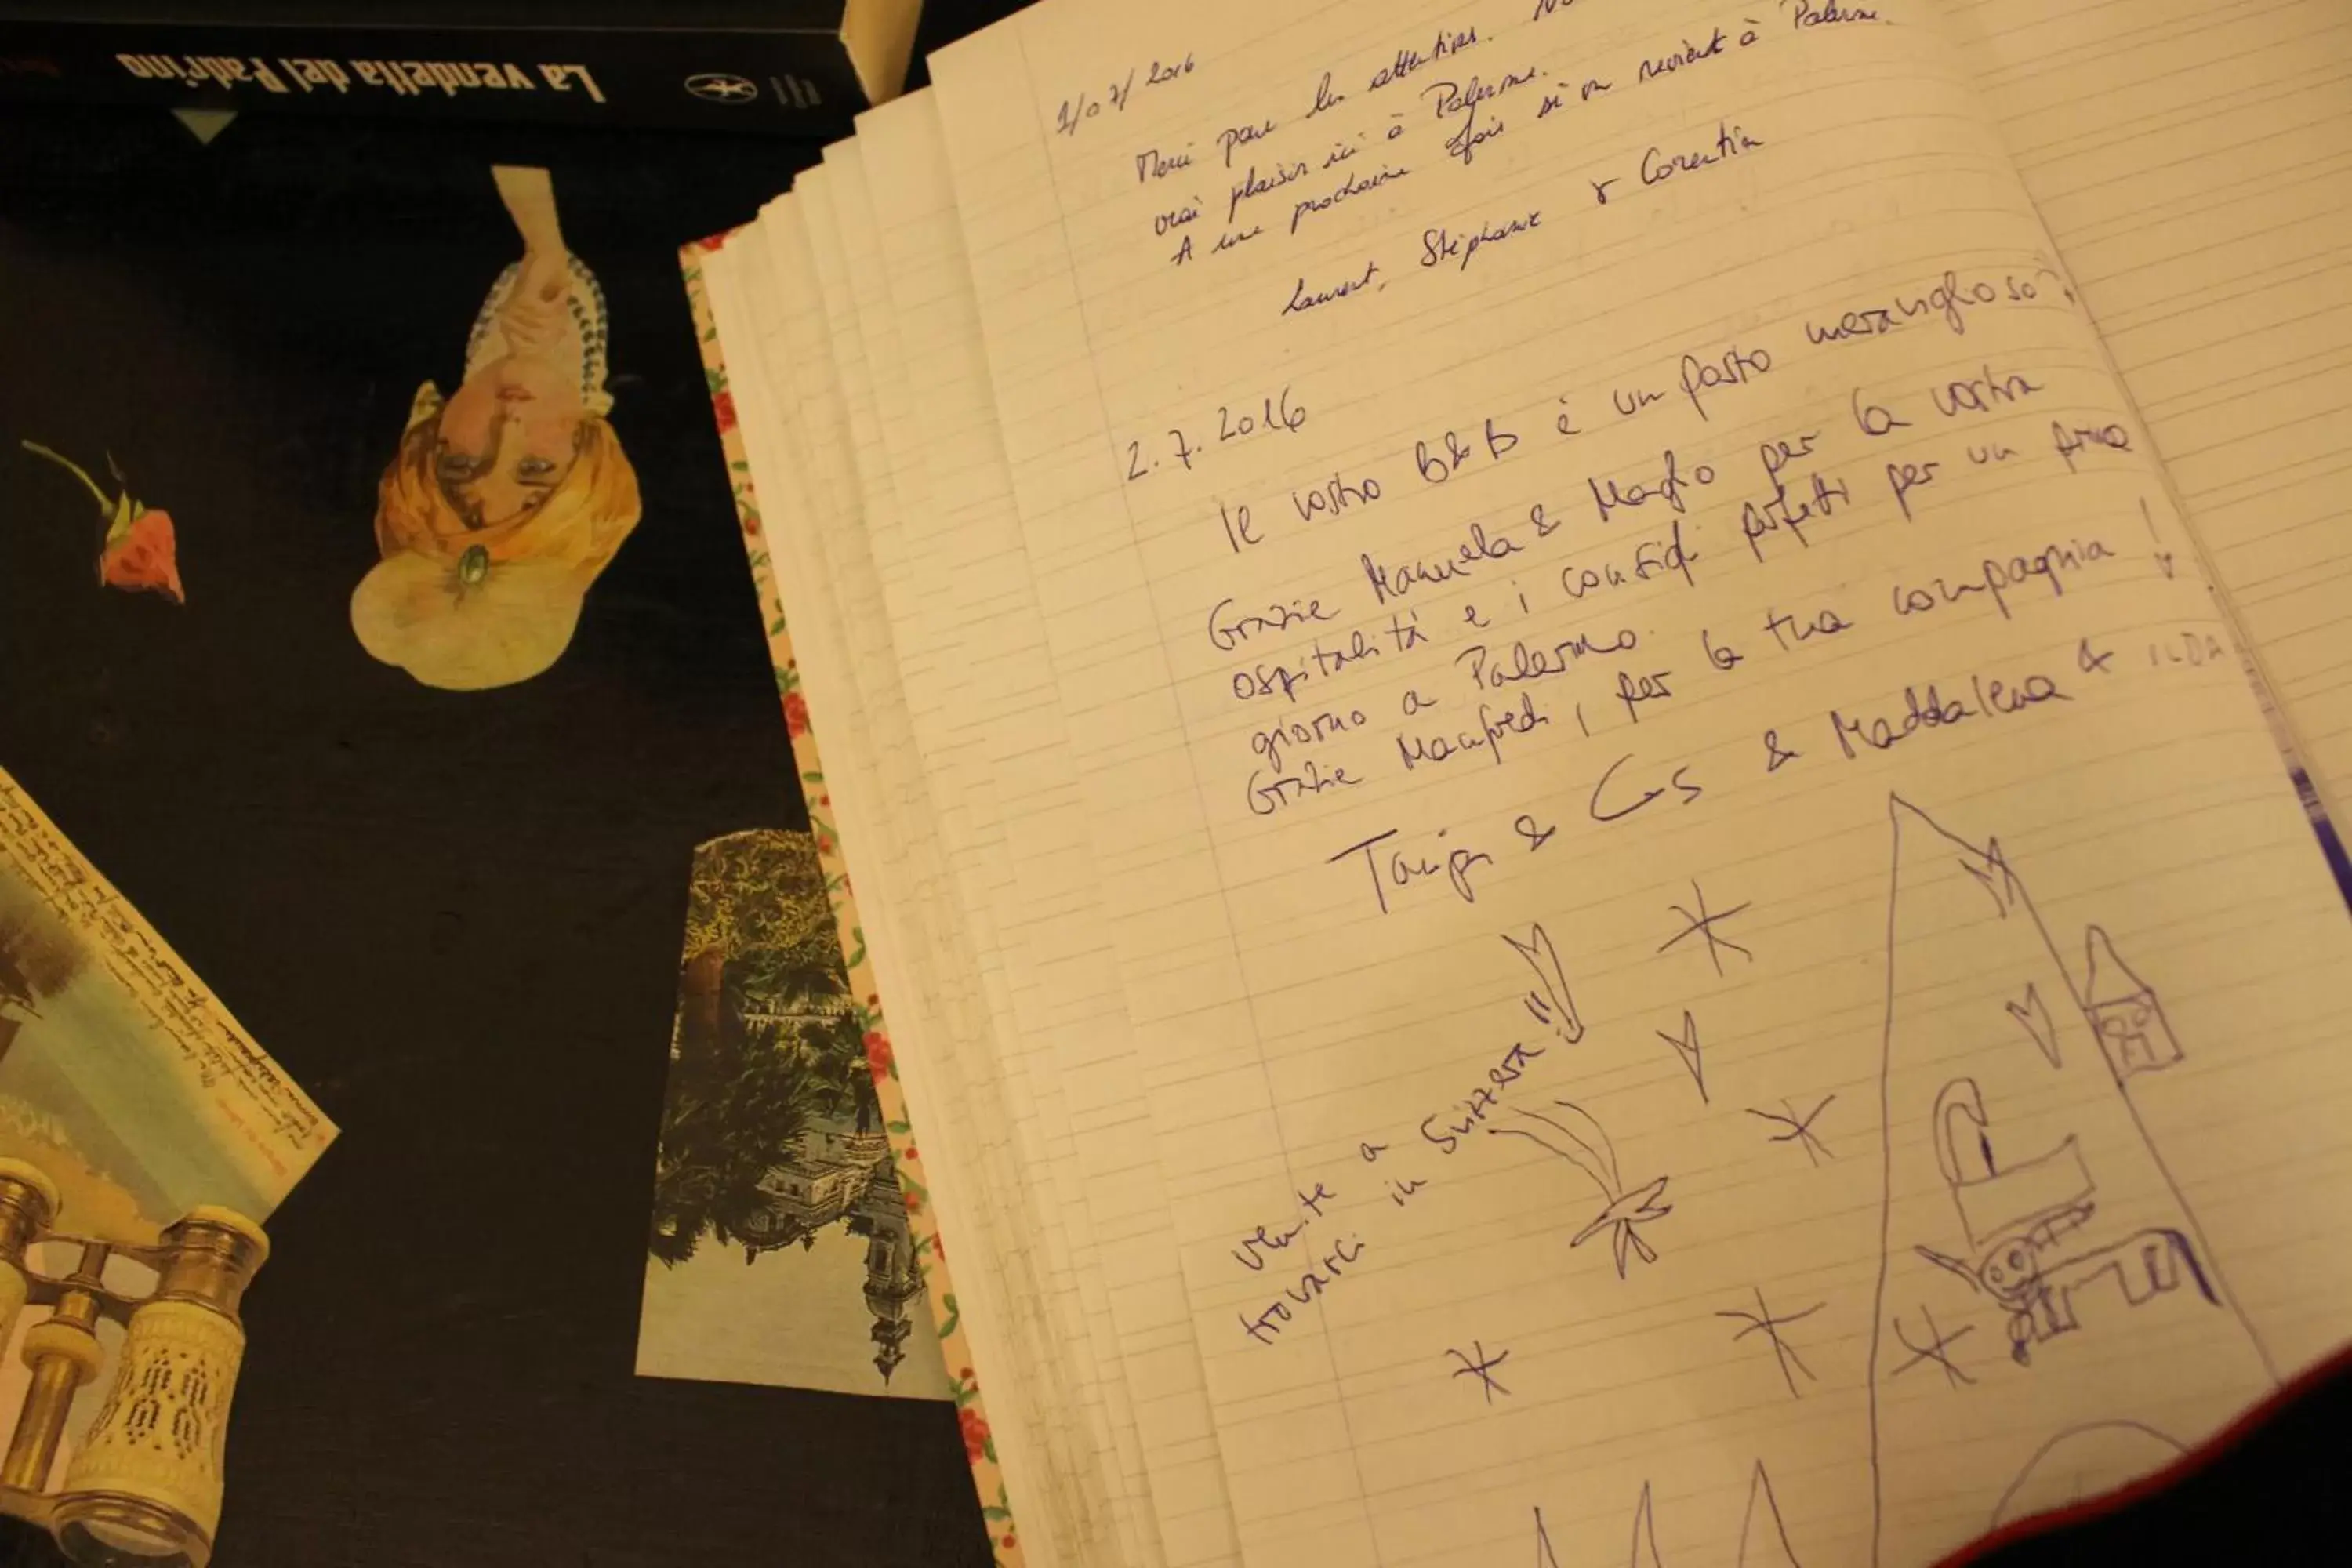 La vendetta del Padrino
1/07/2016
Merci pour les attentions.
vrai plaisir ici à Palerme.
A une prochaine fois si on revient à Palerme.
Laurent, Stéphanie & Corentin
2.7.2016
Il vostro B&B è un posto meraviglioso
Grazie Manuela & Maglio per la vostra
ospitalità e i consigli perfetti per un primo
giorno a Palermo.
Grazie Manfredi, per la tua compagnia!
& & Maddalena & ILDA
Venite a
trovarci in Svizzera!!